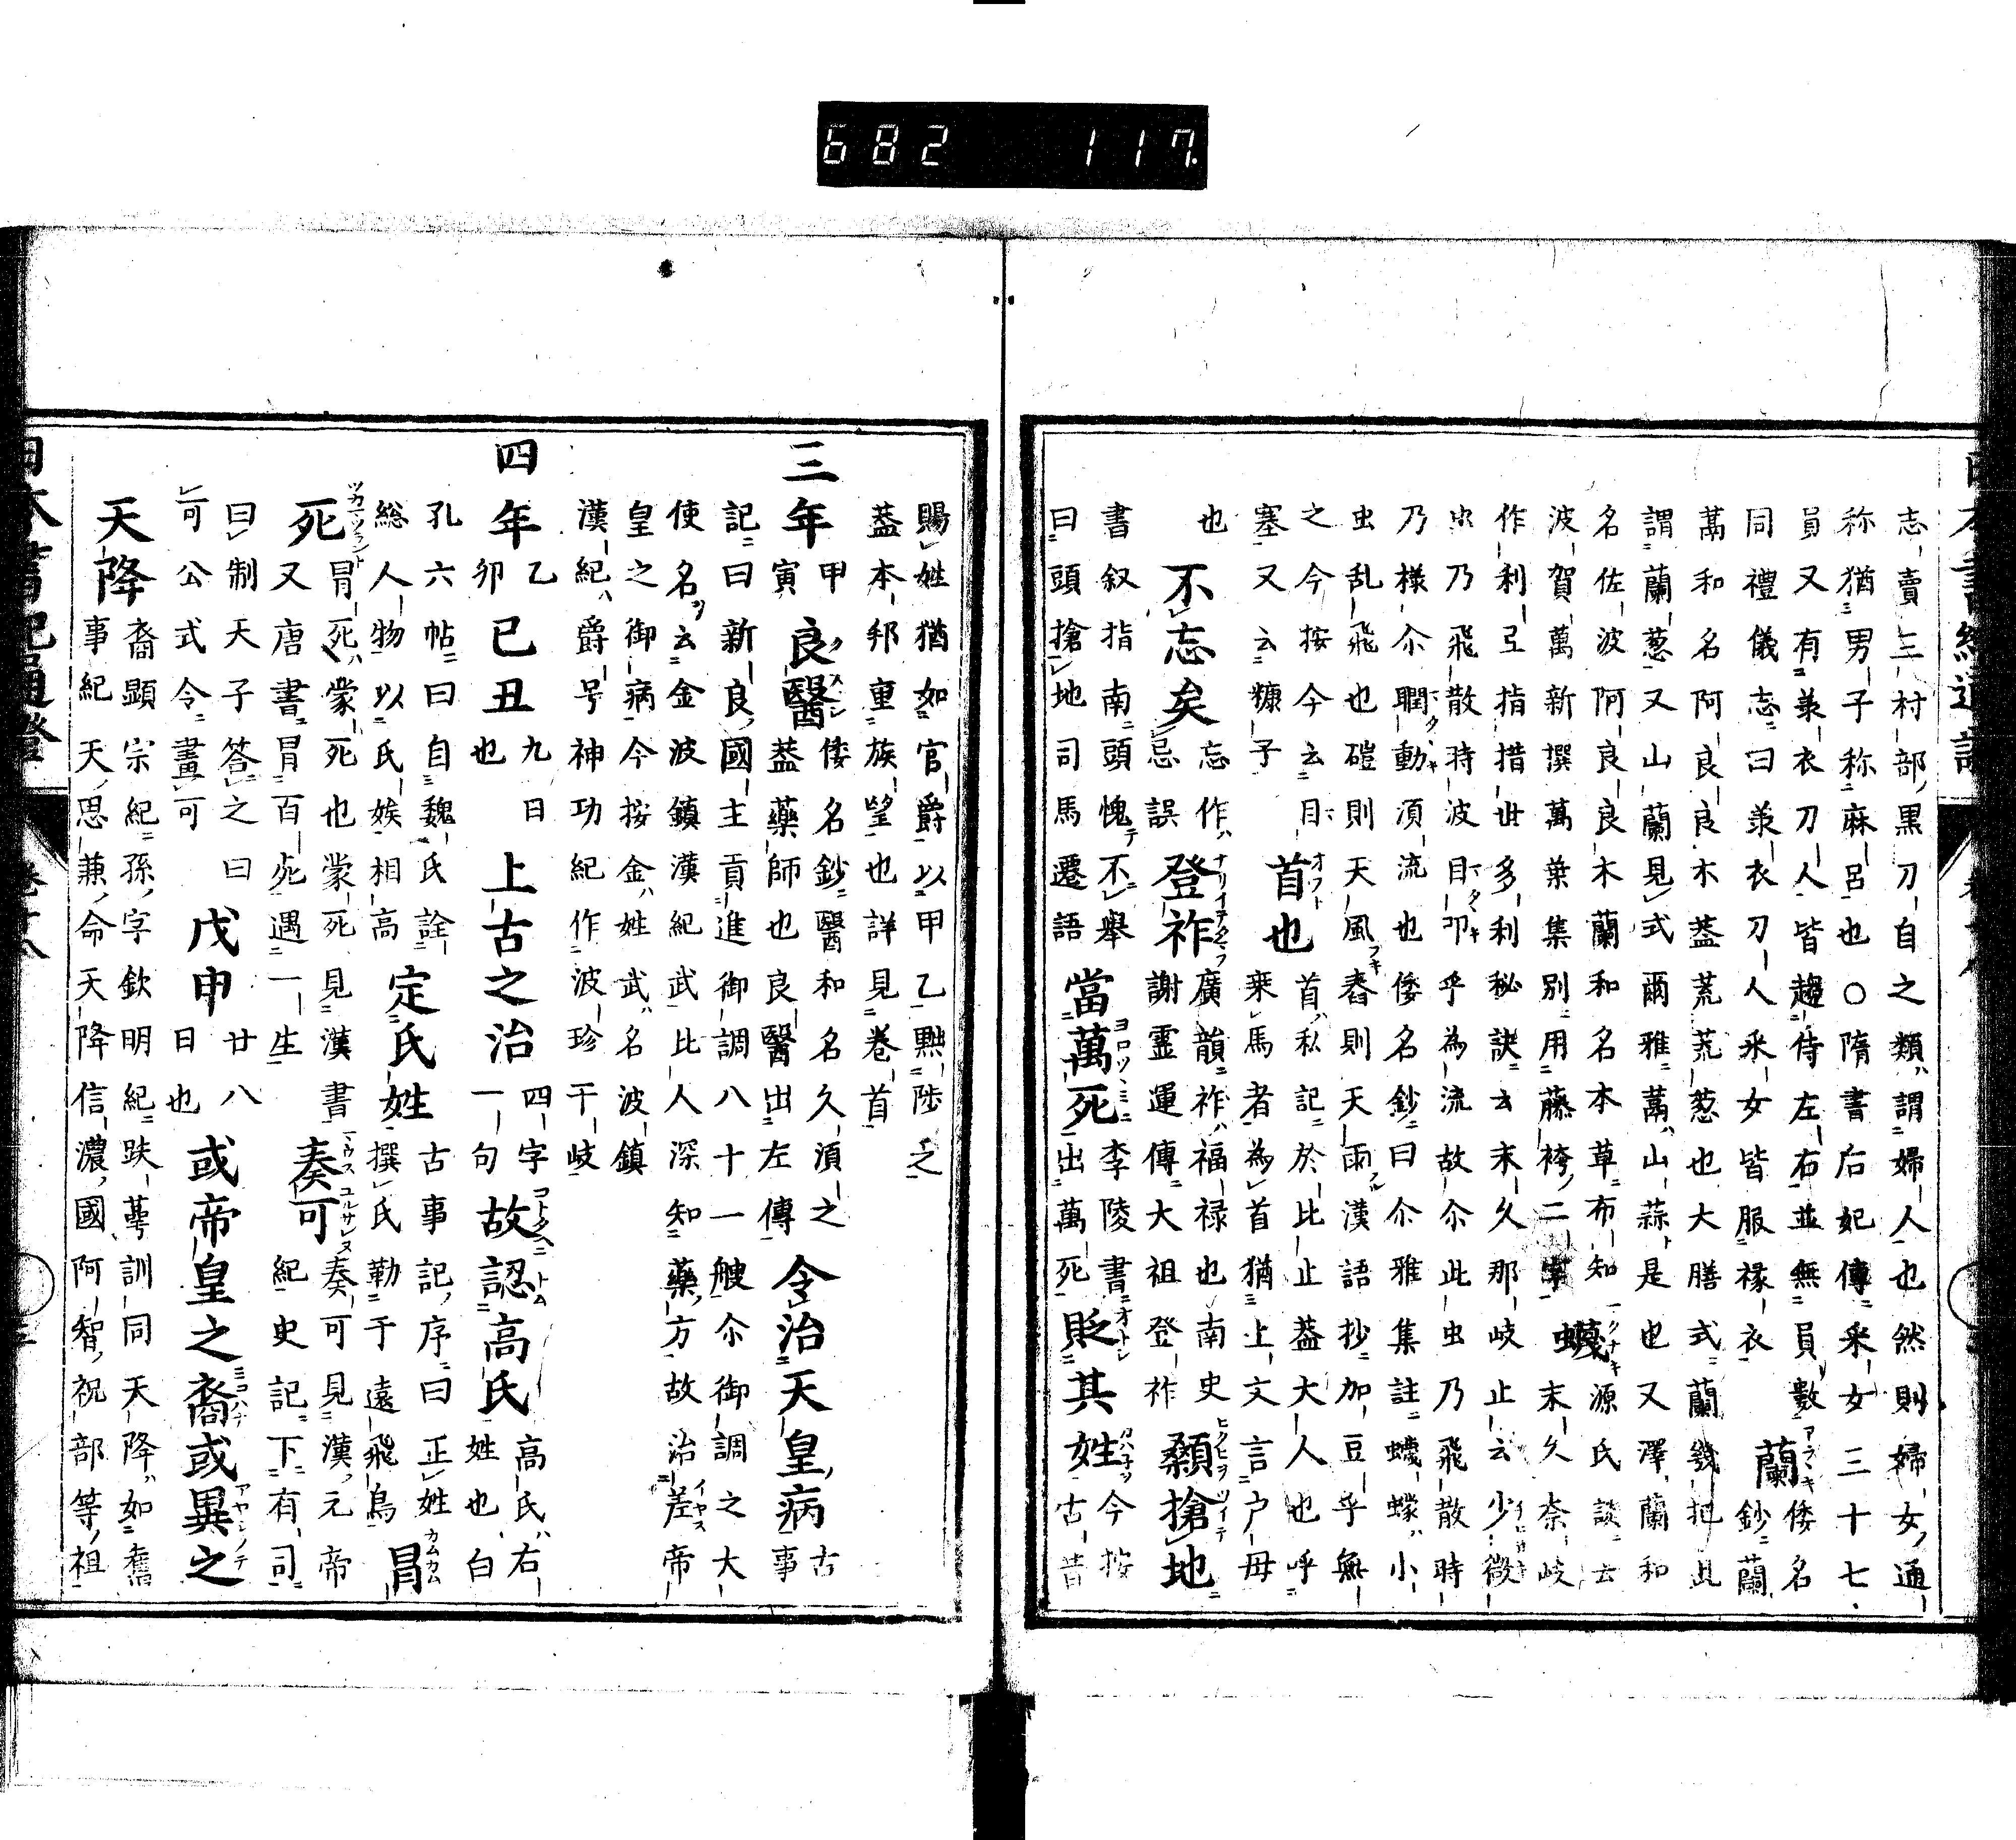 682 117
志賣三村部黒刀自之類謂婦人也然則婦女通
称猶男子称麻呂也〇隋書后妃傳采女三十七
員又有羕衣刀人皆趨侍左右並無員數
蘭
倭名
鈔蘭
同禮儀志曰羕衣刀人采女皆服褖衣
蒚和名阿良良木蓋荒荒葱也大膳式蘭幾把此
謂蘭葱又山蘭見式爾雅蒚山蒜是也又澤蘭和
名佐波阿良良木蘭和名本草布知
波賀萬新撰萬葉集別用藤袴二字
蠛
源氏談云
末久奈岐
作利引指措世多利秘訣云末久那岐止云少微
虫乃飛散時波目叩乎為流故尒此虫乃飛散時
乃樣尒瞤動湏流也倭名鈔曰尒雅集註蠛蠓小
虫乱飛也磑則天風舂則天雨漢語抄加豆乎無
之今按今云目
塞又云糠子
首也
首私記於比止蓋大人也呼
乗馬者為首猶上文言户母
也
不忘矣
忘
忌
作
誤
登祚
廣韻祚福禄也南史
謝靈運傳大祖登祚
顙搶地
書叙指南頭愧不舉
曰頭搶地司馬遷語
當萬死
李陵書
出萬死
貶其姓
今按
古昔
賜姓猶如官爵以甲乙黜陟之
蓋本邦重族望也詳見卷首
三年
甲
寅
良醫
倭名鈔醫和名久湏之
蓋藥師也良醫出左傳
令治天皇病
古
事
記曰新良國主貢進御調八十一艘尒御調之大
使名云金波鎮漢紀武比人深知藥方故治差帝
皇之御病今按金姓武名波鎮
漢紀爵号神功紀作波珍干岐
四年
乙
卯
已丑
九日
也
上古之治
四字
一句
故認高氏
高氏右
姓也白
孔六帖曰自魏氏詮
総人物以氏族相高
定氏姓
古事記序曰正姓
撰氏勒于遠飛鳥
冒
死
冒死蒙死也蒙死見漢書
又唐書冒百死遇一生
奏可
奏可見漢元帝
紀史記下有司
曰制天子答之曰
可公式令畫可
戊申
廿八
日也
或帝皇之裔或異之
天降
裔顯宗紀孫字欽明紀趺蕚訓同天降如舊
事紀天思兼命天降信濃國阿智祝部等祖